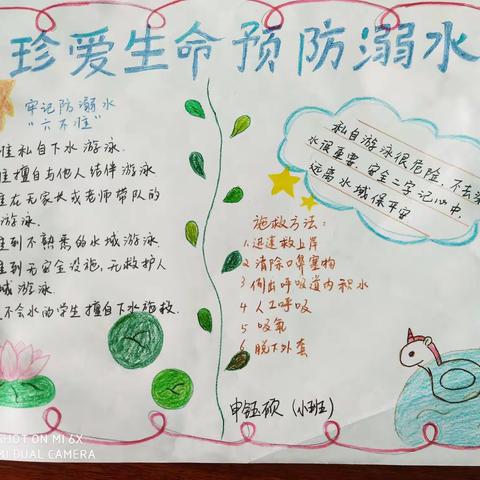 珍爱生命预防溺水
牢记防溺水
"六不准"
准私自下水游泳.
准擅自与他人结伴游泳
准在无家长或老师带队的
游泳.
准到不熟悉的水域游泳
准到无安全设施,无救护人
域游泳.
不会水的学生擅自下水施救.
私自游泳很危险,不去
水很重要,安全二字记心中
远离水域保平安
施救方法:
1.迅速救上岸
2 清除口鼻塞物
3 倒出呼吸道内积水
4 人工呼吸
5 吸氧
6 脱下外套
申钰硕 (小班)
SHOT ON MI 6X
MI DUAL CAMERA